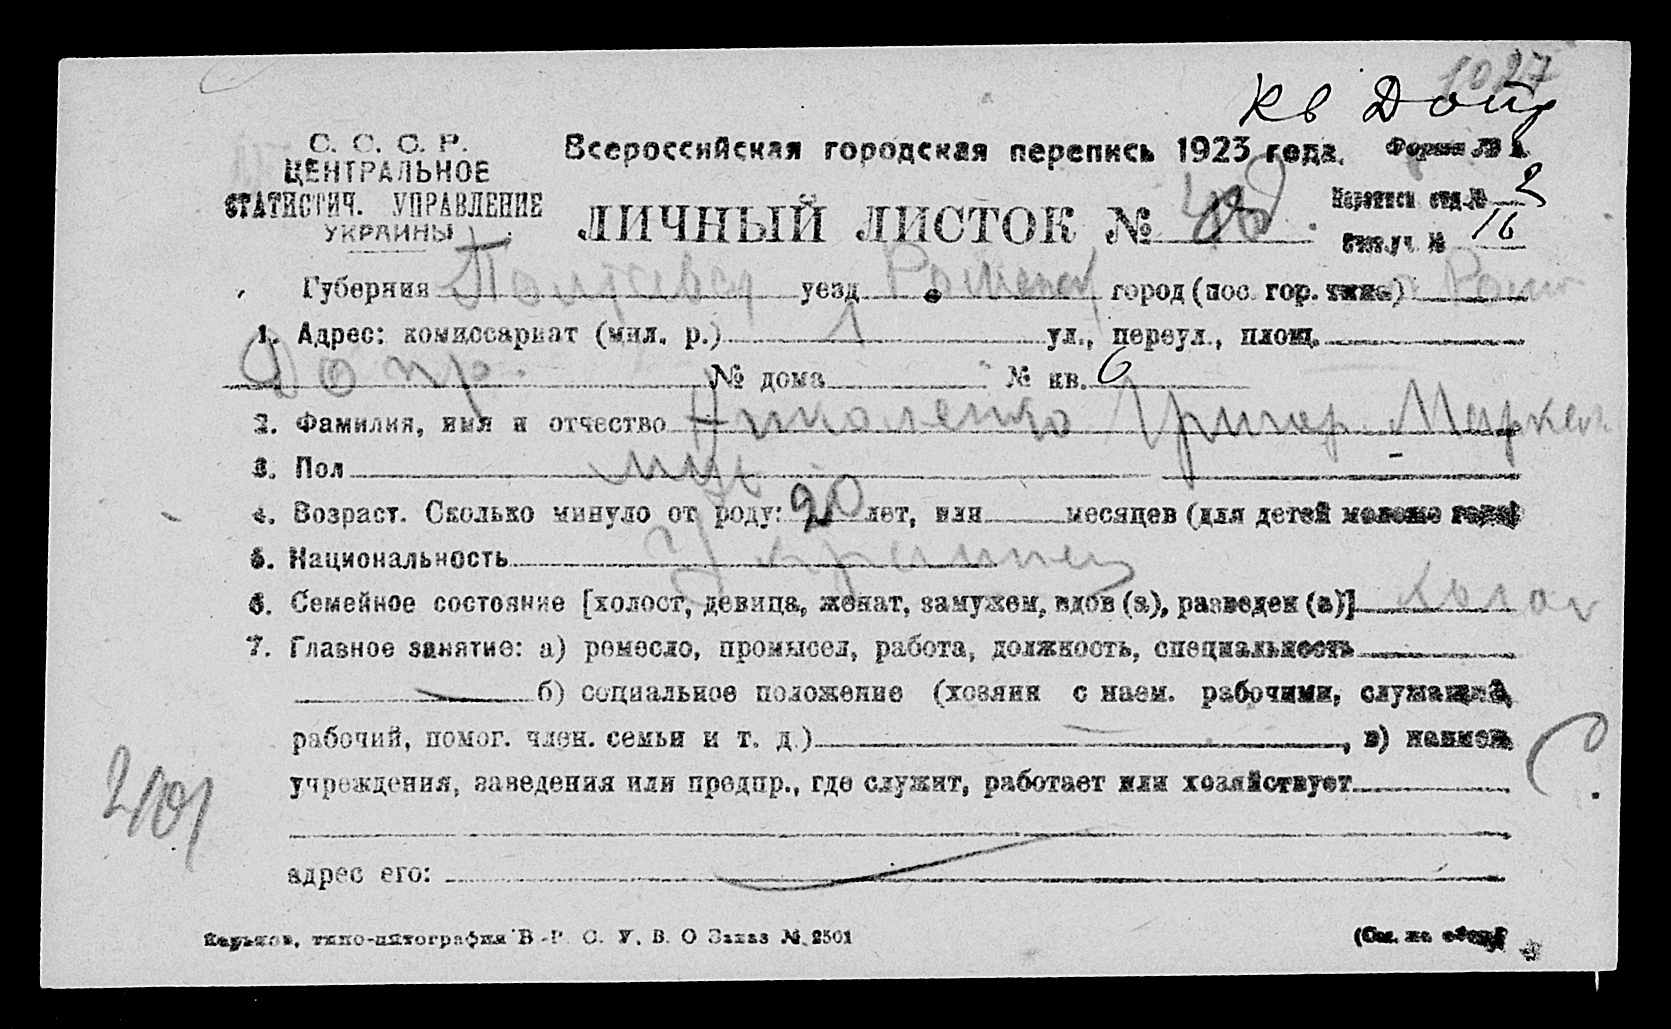 1027
Кв Допр
С. С. С. Р.
ЦЕНТРАЛЬНОЕ
СТАТИСТИЧ. УПРАВЛЕНИЕ
УКРАИНЫ
Всероссийская городская перепись 1923 года.
Форма № 1.
ЛИЧНЫЙ ЛИСТОК №
Переписн отд. № 2
Счетн. уч. № 16
Губерния Полтавская уезд Роменск город (пос. гор. типа) Ромн
1. Адрес: комиссариат (мил. р.) 1 ул., переул., площ.
Допр. № дома № кв. 6
2. Фамилия, имя и отчество Николенко Григор. Марков
3. Пол муж
4. Возраст. Сколько минуло от роду: 20 лет, или месяцев (для детей моложе года)
5. Национальность Украинец
6. Семейное состояние [холост, девица, женат, замужем, вдов (а), разведен (а)] холос
7. Главное занятие: а) ремесло, промысел, работа, должность, специальность
б) социальное положение (хозяин с наем. рабочими, служащий,
рабочий, помог. член. семьи и т. д.) , в) наимен.
учреждения, заведения или предпр., где служит, работает или хозяйствует
адрес его:
401
Харьков, типо-литография В.-Р. С. У. В. О Заказ № 2501
(См. на обор.)